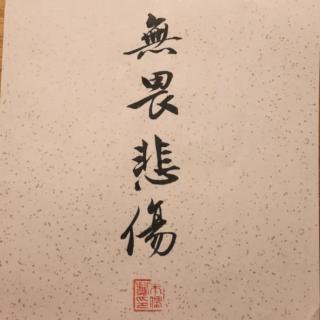 無畏悲傷